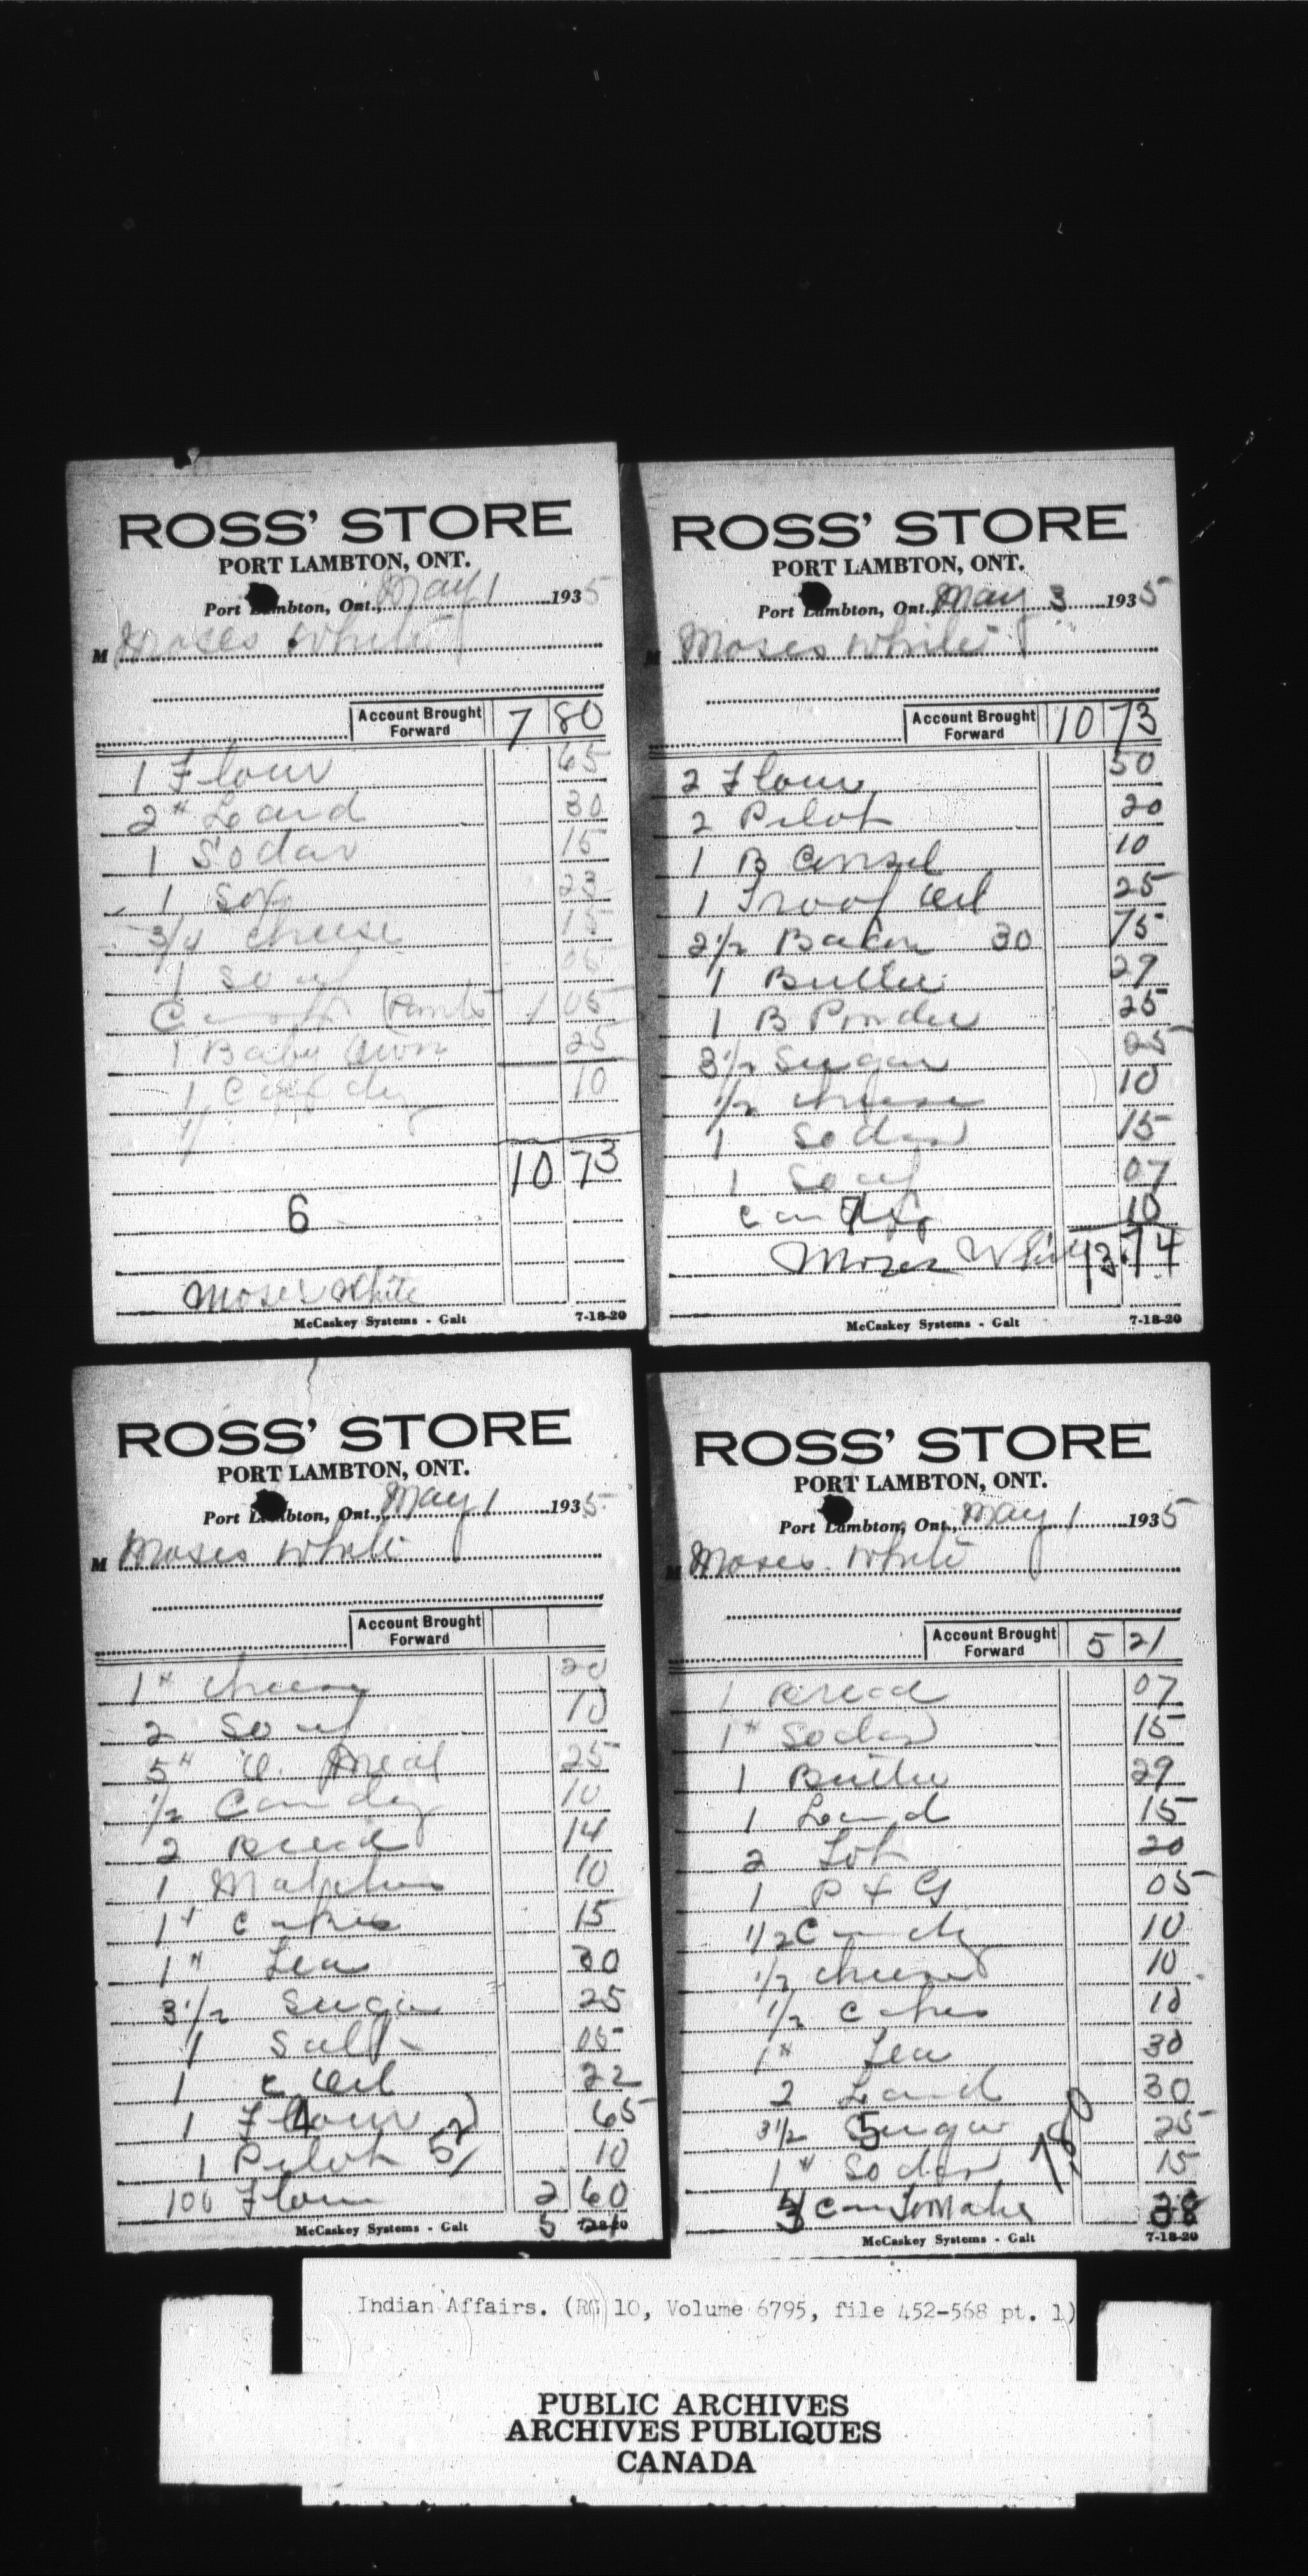 ROSS' STORE
PORT LAMBTON, ONT.
Port Lambton, Ont., May 1 1935
M Moses White
Account Brought Forward 7 80
1 Flour 65
2# Lard 30
1 Sodas 15
1 23
3/4 Cheese 15
1 Soap 05
Pants 1 05
1 Baby Own 25
1 Candy 10
10 73
6
Moses White
McCaskey Systems - Galt 7-18-20
ROSS' STORE
PORT LAMBTON, ONT.
Port Lambton, Ont., May 3 1935
M Moses White
Account Brought Forward 10 73
2 Flour 50
2 Pilot 20
1 B 10
1 Oil 25
2 1/2 Bacon 30 75
1 Butter 29
1 B Powder 25
3 1/2 Sugar 25
1/2 Cheese 10
1 Sodas 15
1 Soap 07
Candy 10
7
Moses White 13.74
McCaskey Systems - Galt 7-18-20
ROSS' STORE
PORT LAMBTON, ONT.
Port Lambton, Ont., May 1 1935
M Moses White
Account Brought Forward
1# Cheese 20
2 Soap 10
5# O. Meal 25
1/2 Candy 10
2 Bread 14
1 Matches 10
1# Cakes 15
1# Tea 30
3 1/2 Sugar 25
1 Salt 05
1 C Oil 22
1 Flour 65
4
1 Pilot 10
100 Flour 2 60
5 21
McCaskey Systems - Galt 7-18-20
ROSS' STORE
PORT LAMBTON, ONT.
Port Lambton, Ont., May 1 1935
M Moses White
Account Brought Forward 5 21
1 Bread 07
1# Sodas 15
1 Butter 29
1 Lard 15
2 20
1 P & G 05
1/2 Candy 10
1/2 Cheese 10
1/2 Cakes 10
1# Tea 30
2 Lard 30
3 1/2 Sugar 25
5
1# Sodas 15
7.80
3 Can Tomatoe 38
McCaskey Systems - Galt 7-18-20
Indian Affairs. (RG 10, Volume 6795, file 452-568 pt. 1)
PUBLIC ARCHIVES
ARCHIVES PUBLIQUES
CANADA